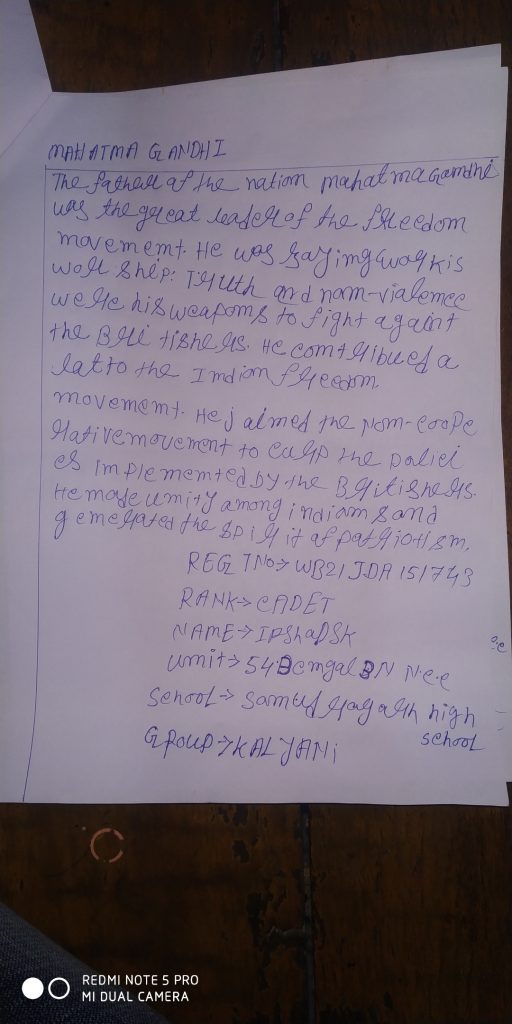 MAHATMA GANDHI
The father of the nation mahatma Gandhi
was the great leader of the freedom
movement. He was saying work is
worship: Truth and non-violence
were his weapons to fight againt
the Britishers. He contribued a
lat to the Indian freedom
movement. He j aimed the Non-coope
rative movement to curp the polici
es implemented by the Britishers.
He made unity among indians and
generated the spirit of patriotism.
REG TNo→ WB21JDA151743
RANK→ CADET
NAME→ IRShaD SK
unit→ 54 Bengal BN N.C.C
School→ high
school
Group→ KALYANi
REDMI NOTE 5 PRO
MI DUAL CAMERA